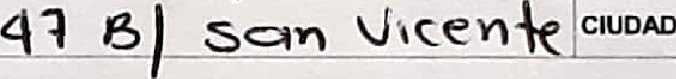 47 B/ San Vicente CIUDAD